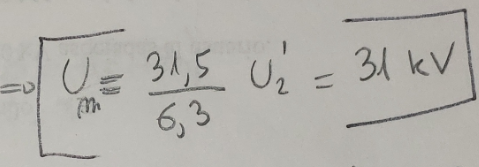 => U_m = 31,5/6,3 U_2' = 31 kV